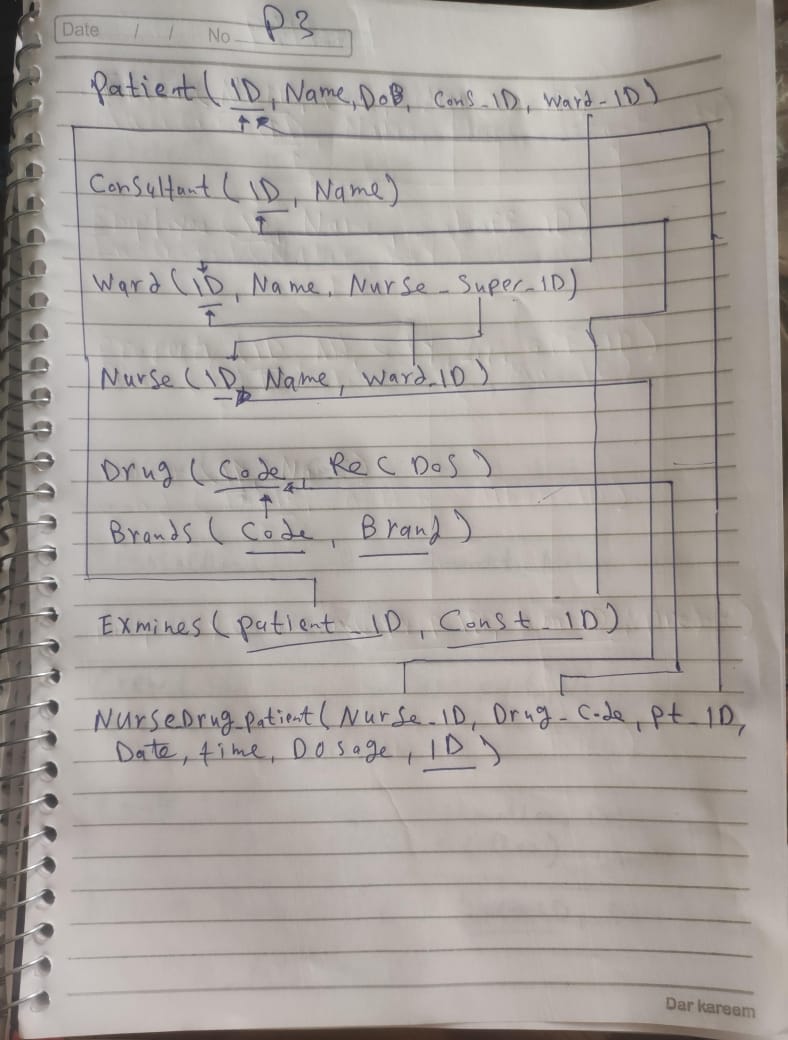 Date / / No P3
Patient ( ID, Name, DoB, Cons_ID, Ward_ID )
Consultant ( ID, Name )
Ward ( ID, Name, Nurse_Super_ID )
Nurse ( ID, Name, Ward_ID )
Drug ( Code, Rec Dos )
Brands ( Code, Brand )
Exmines ( Patient_ID, Const_ID )
NurseDrug_patient ( Nurse_ID, Drug_Code, pt_ID,
Date, time, Dosage, ID )
Dar kareem